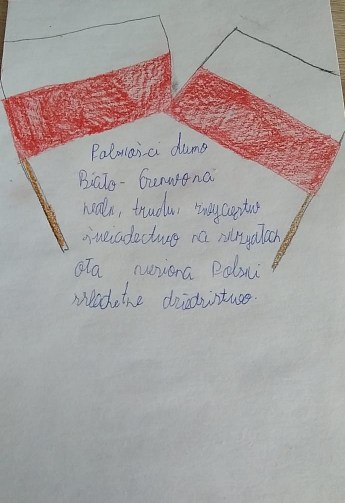 Polskości dumo
Biało-Czerwona
walk, trudu, zwycięstw
świadectwo na skrzydłach
orła niesiona Polski
szlachetne dziedzictwo.